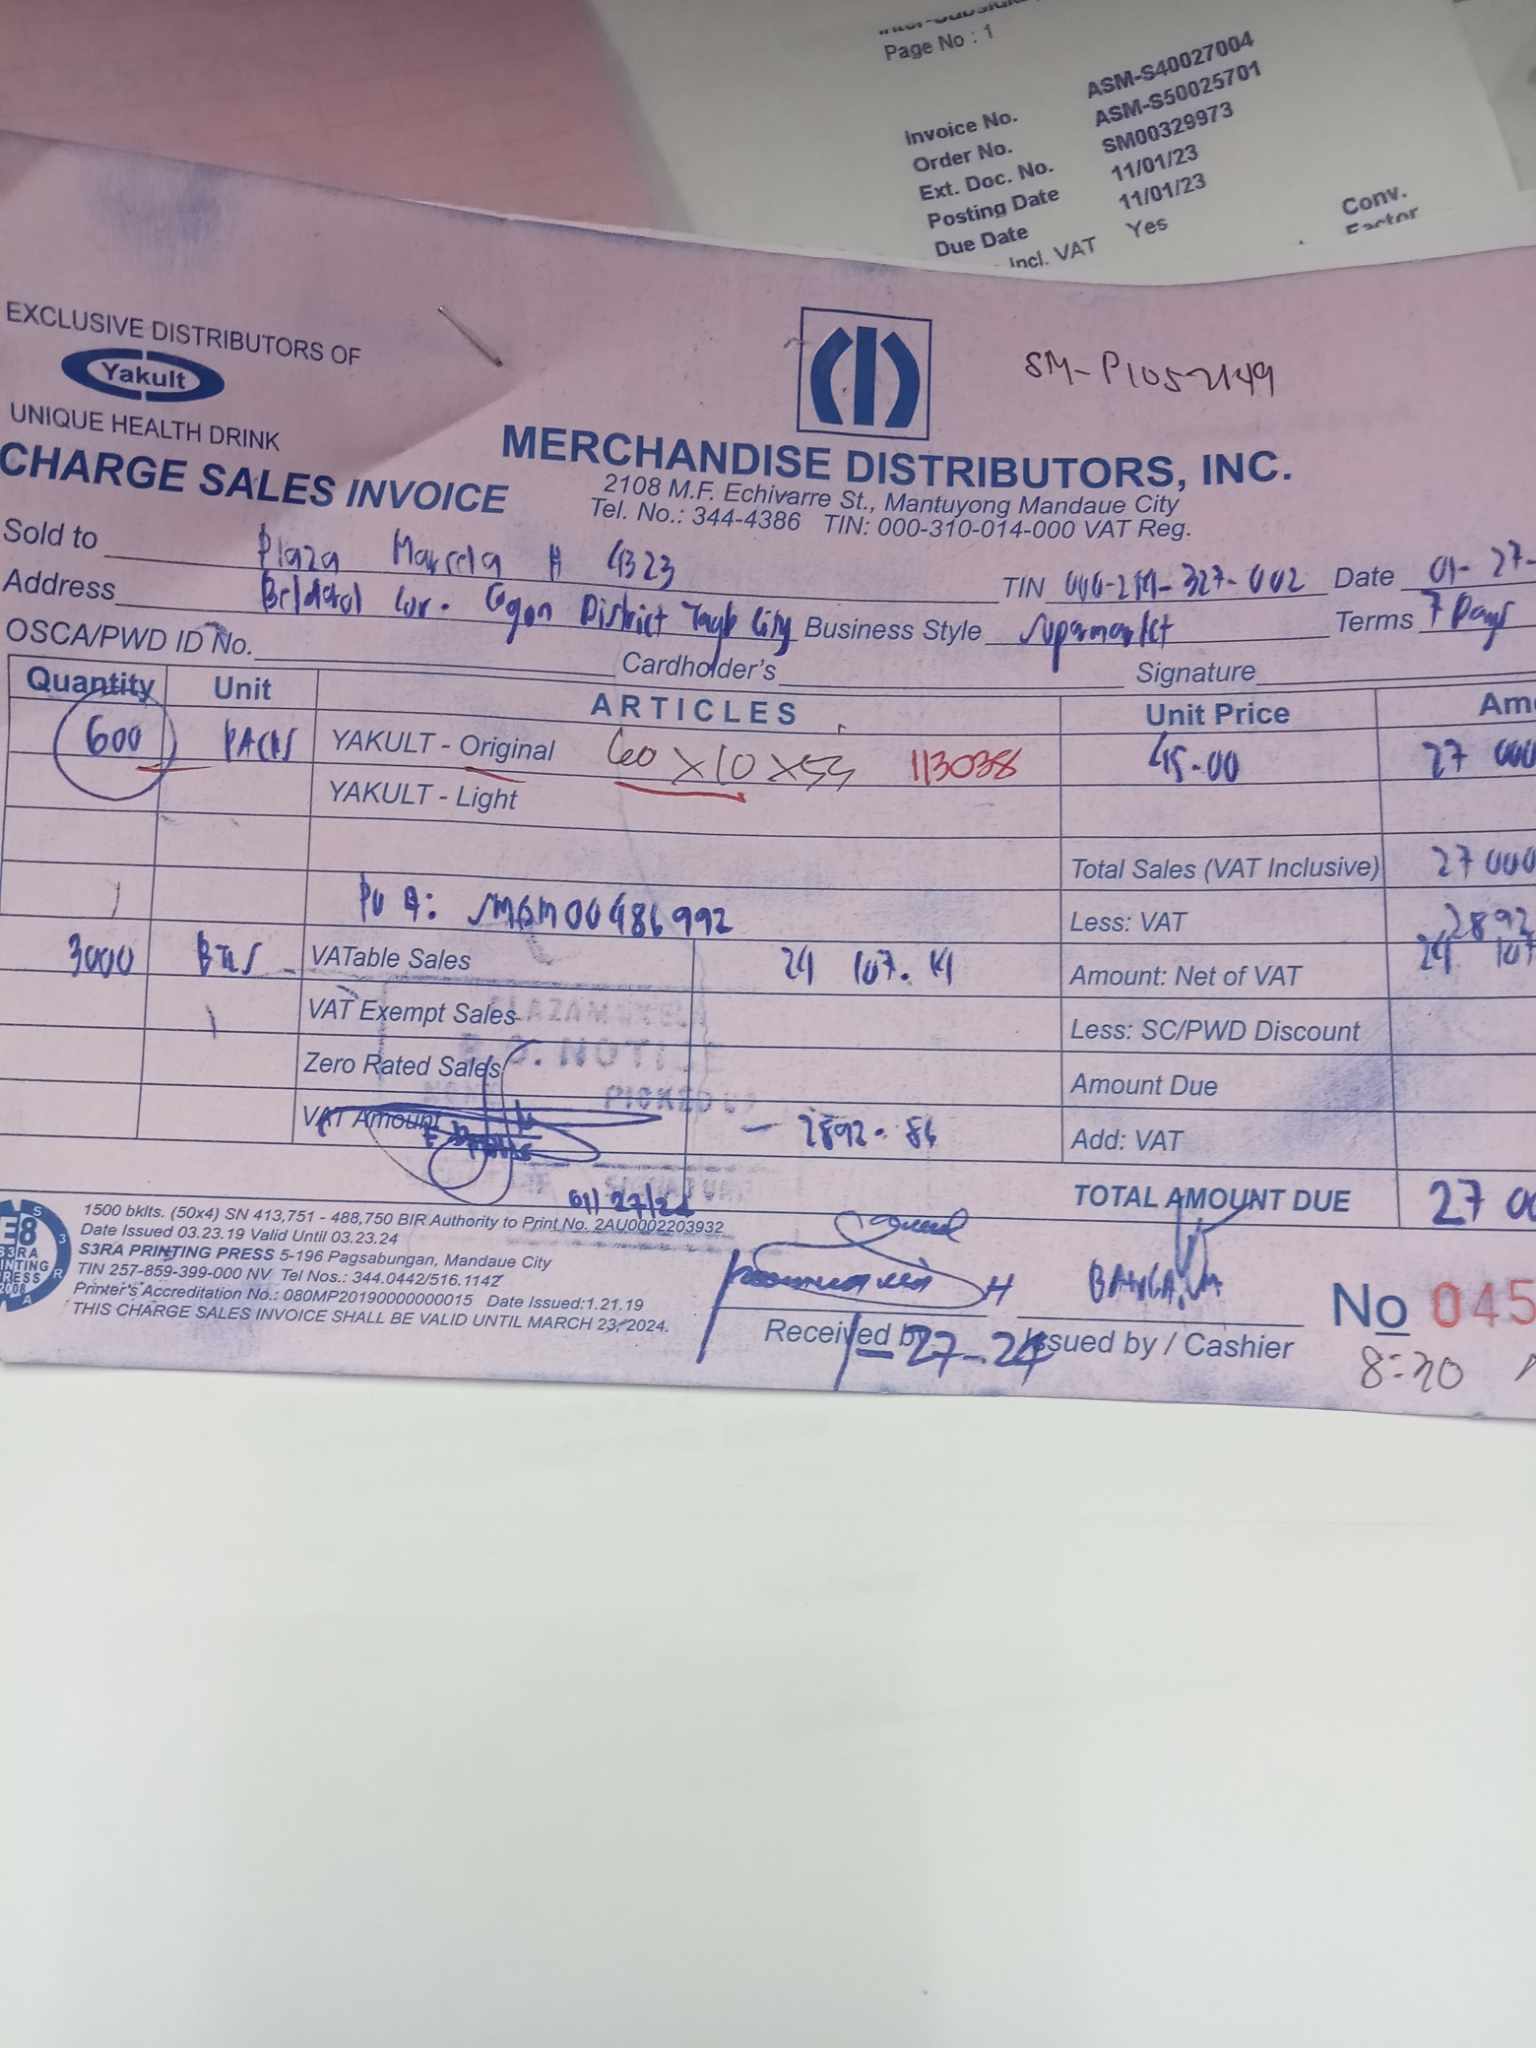 Page No : 1
Invoice No. ASM-S40027004
Order No. ASM-S50025701
Ext. Doc. No. SM00329973
Posting Date 11/01/23
Due Date 11/01/23
Incl. VAT Yes
Conv.
Factor
EXCLUSIVE DISTRIBUTORS OF
Yakult
UNIQUE HEALTH DRINK
CHARGE SALES INVOICE
SM-P1052149
MERCHANDISE DISTRIBUTORS, INC.
2108 M.F. Echivarre St., Mantuyong Mandaue City
Tel. No.: 344-4386 TIN: 000-310-014-000 VAT Reg.
Sold to Plaza Marcela # 4323 TIN 327-002 Date 01-27-
Address Cor. Cogon District Tagb City Business Style Supermarket Terms 7 Days
OSCA/PWD ID No. Cardholder's Signature
Quantity Unit ARTICLES Unit Price
600 PACKS YAKULT - Original 60 x 10 x 113038 45.00 27 000
YAKULT - Light
Total Sales (VAT Inclusive) 27 000
PO #: SMSM00486992 Less: VAT 2892
3000 BTLS VATable Sales 24 107.14 Amount: Net of VAT 24 107
VAT Exempt Sales Less: SC/PWD Discount
Zero Rated Sales Amount Due
VAT Amount - 2892.86 Add: VAT
TOTAL AMOUNT DUE
01/27/24
1500 bklts. (50x4) SN 413,751 - 488,750 BIR Authority to Print No. 2AU0002203932
Date Issued 03.23.19 Valid Until 03.23.24
S3RA PRINTING PRESS 5-196 Pagsabungan, Mandaue City
TIN 257-859-399-000 NV Tel Nos.: 344.0442/516.1142
Printer's Accreditation No.: 080MP20190000000015 Date Issued:1.21.19
THIS CHARGE SALES INVOICE SHALL BE VALID UNTIL MARCH 23, 2024.
Received by Issued by / Cashier
1-27-24
No 045
8:20